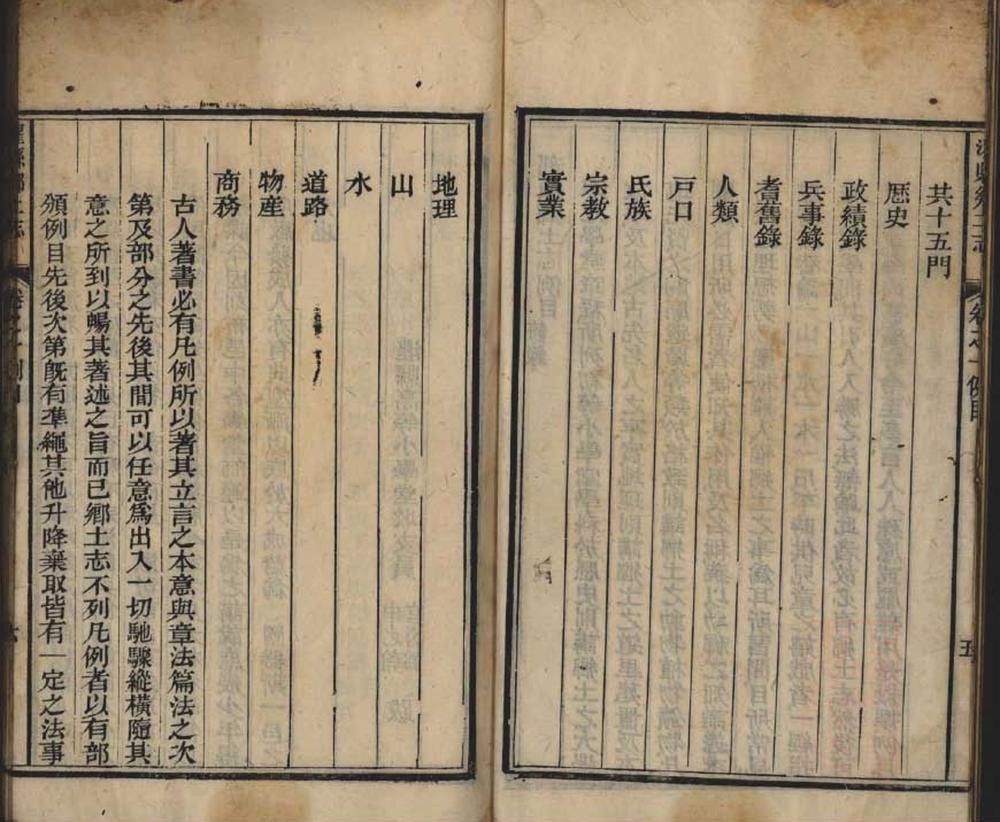 共十五門
歷史
政績錄
兵事錄
耆舊錄
人類
戶口
氏族
宗教
實業
五
地理
山
水
道路
物産
商務
古人著書必有凡例所以著其立言之本意與章法篇法之次
第及部分之先後其間可以任意爲出入一切馳驟縱橫隨其
意之所到以暢其著述之旨而已鄉土志不列凡例者以有部
頒例目先後次第旣有凖繩其他升降棄取皆有一定之法事